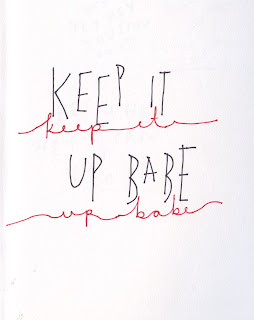 KEEP IT
keep it
UP BABE
up babe